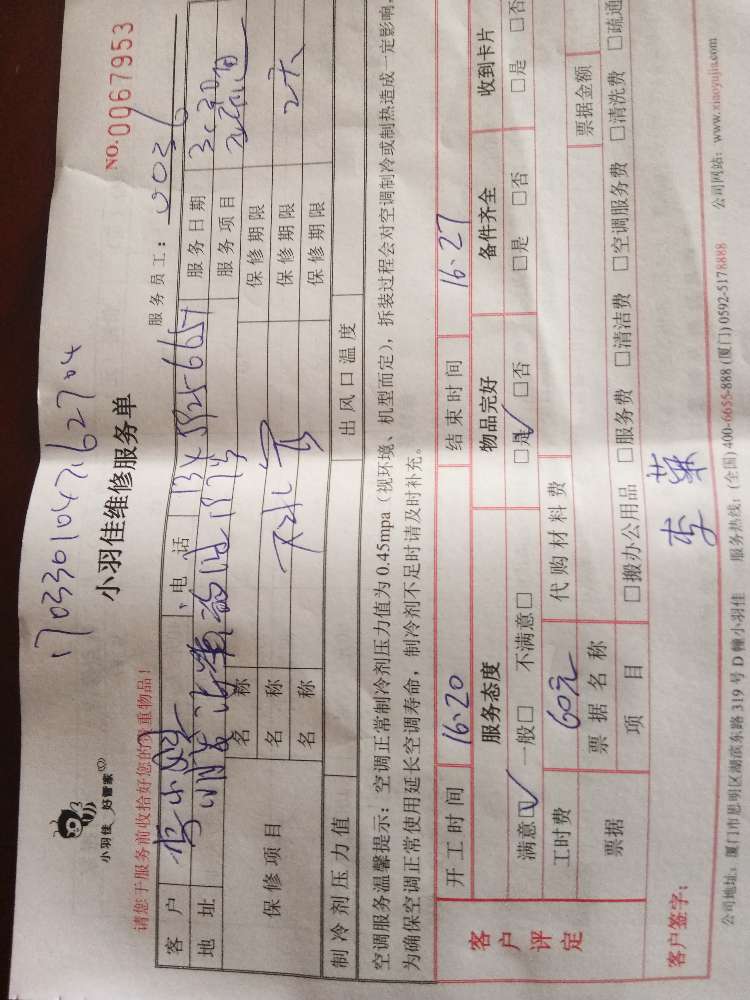 1703301047162704
NO.0067953
小羽佳 好管家
小羽佳维修服务单
请您于服务前收拾好您的贵重物品！
服务员工：0036
客户 电话 服务日期
地址 服务项目
保修项目 名称 保修期限
名称 保修期限 2天
名称 保修期限
制冷剂压力值 出风口温度
空调服务温馨提示：空调正常制冷剂压力值为0.45mpa（视环境、机型而定），拆装过程会对空调制冷或制热造成一定影响，
为确保空调正常使用延长空调寿命，制冷剂不足时请及时补充。
客户评定
开工时间 16:20 结束时间 16:27
服务态度 物品完好 备件齐全 收到卡片
满意☑ 一般□ 不满意□ ☑是 □否 □是 □否 □是 □否
工时费 60元 代购材料费
票据 票据名称 票据金额
项目 □搬办公用品 □服务费 □清洁费 □空调服务费 □清洗费 □疏通
客户签字：
公司地址：厦门市思明区湖滨东路319号D幢小羽佳 服务热线：(全国)400-6655-888 (厦门)0592-5178888 公司网站：www.xiaoyujia.com